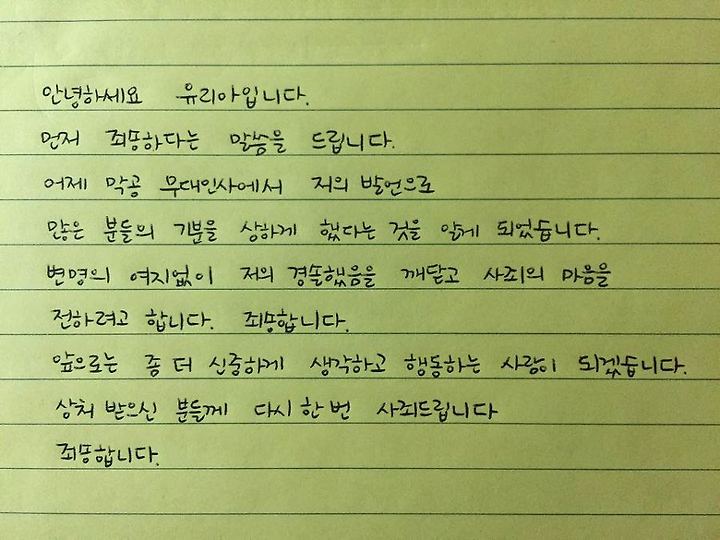 안녕하세요 유리아입니다.
먼저 죄송하다는 말씀을 드립니다.
어제 막공 무대인사에서 저의 발언으로
많은 분들의 기분을 상하게 했다는 것을 알게 되었습니다.
변명의 여지없이 저의 경솔했음을 깨닫고 사죄의 마음을
전하려고 합니다. 죄송합니다.
앞으로는 좀 더 신중하게 생각하고 행동하는 사람이 되겠습니다.
상처 받으신 분들께 다시 한 번 사죄드립니다
죄송합니다.